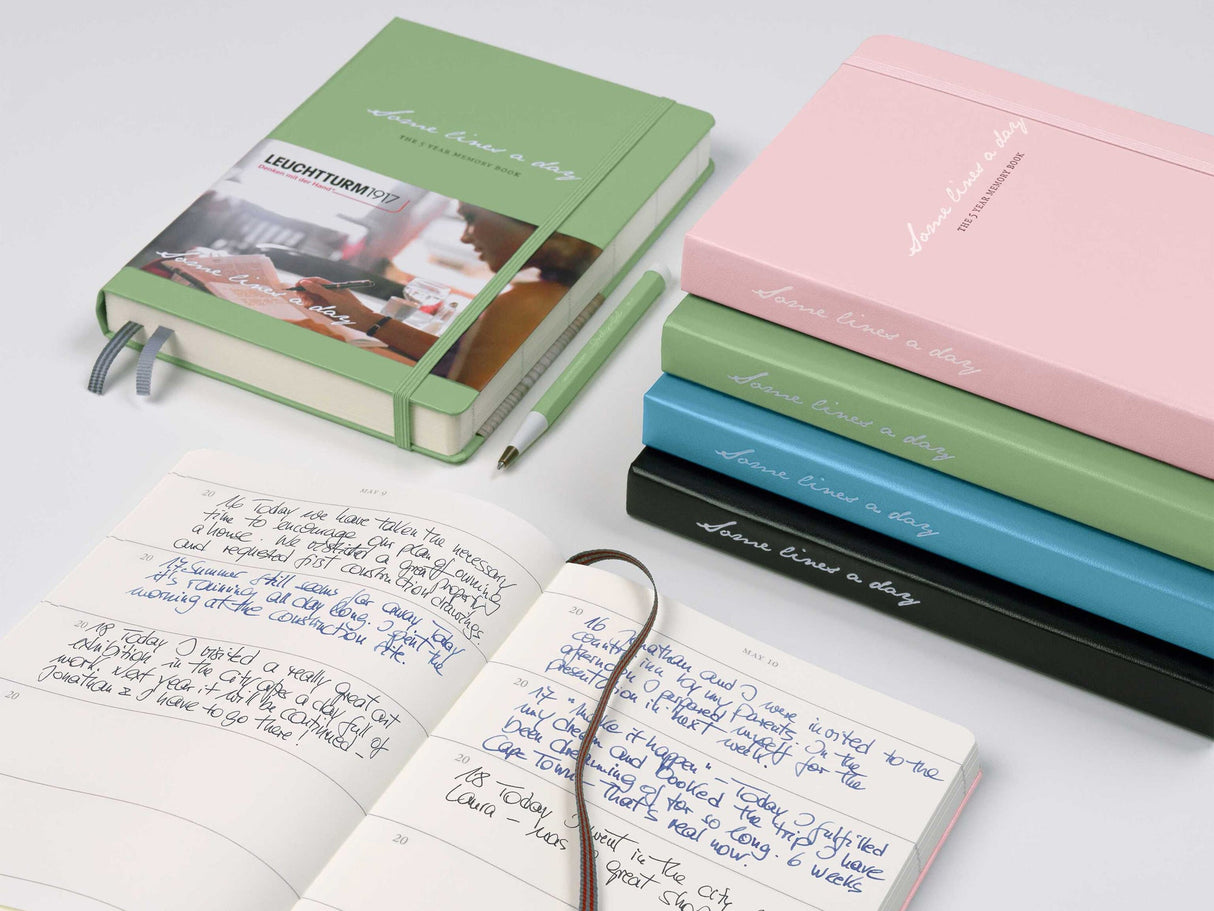 Some lines a day
THE 5 YEAR MEMORY BOOK
LEUCHTTURM1917
Denken mit der Hand
Some lines a day
Some lines a day
THE 5 YEAR MEMORY BOOK
Some lines a day
Some lines a day
Some lines a day
Some lines a day
MAY 9
20 16 Today we have taken the necessary
time to encourage our plan of owning
a house. We visited a great property
and requested first construction drawings.
20 17 Summer still seems far away. Today
it's raining all day long. I spent the
morning at the construction site.
20 18 Today I visited a really great art
exhibition in the city after a day full of
work. Next year it will be continued –
Jonathan & I have to go there!
20
MAY 10
20
16 Jonathan and I were invited to the
country inn by my parents. In the
afternoon I prepared myself for the
presentation in next week.
20
17 "Make it happen" – Today I fulfilled
my dream and booked the trip I have
been dreaming of for so long. 6 weeks
Cape Town – that's real now.
20
18 Today I went in the city
Laura – was great
20